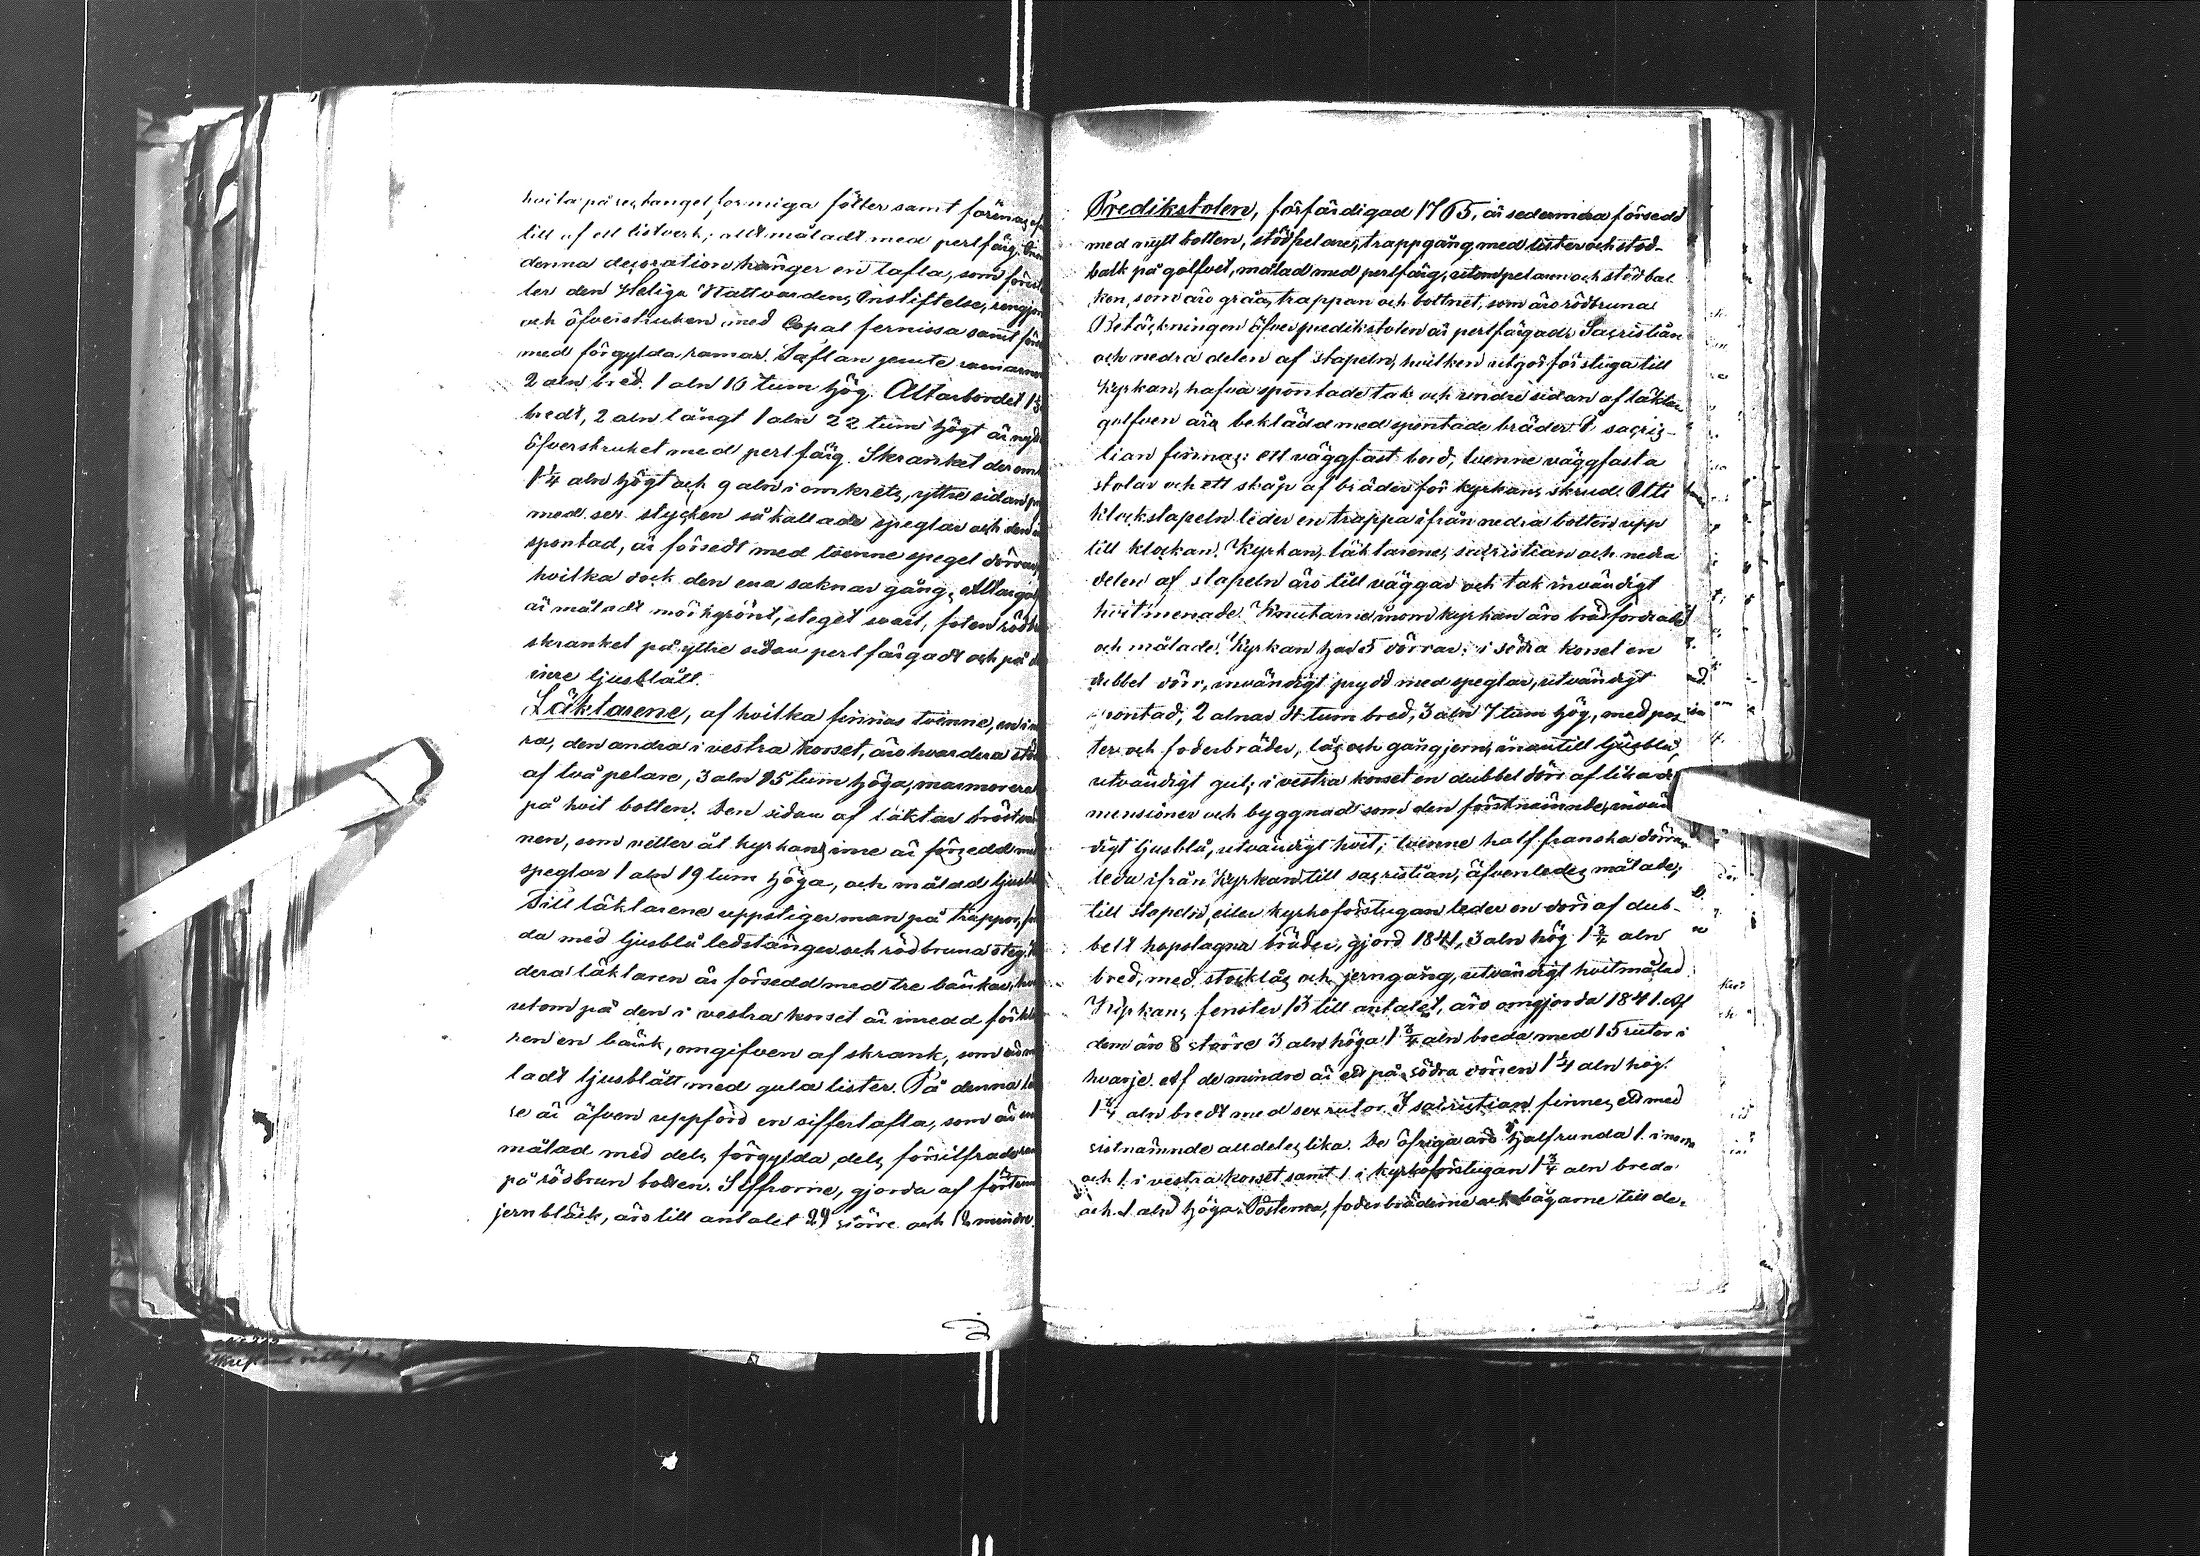 hvila på rectangel formiga fötter samt förenas
till af ett listverk; allt måladt med perlfärg.
denna decoration hänger en tafla, som
ler den Heliga Nattvardens Instiftelse,
och öfverstruken med Copal fernissa samt
med förgylda ramar. Taflan jemte ramarne
2 aln bred. 1 aln 16 tum hög. Altarbordet
bredt, 2 aln långt 1 aln 22 tum högt är
öfverstruket med perlfärg. Skranket
1¼ aln högt och 9 aln i omkrets, yttre sidan
med sex stycken så kallade speglar och
spontad, är försedt med tvenne spegel dörrar,
hvilka dock den ena saknar gång.
är måladt mörkgrönt, steget svart, foten
skranket på yttre sidan perlfärgadt och på
inre ljusblått.
Läktarene, af hvilka finnas tvenne, en i
ra, den andra i vestra korset, äro hvardera
af två pelare, 3 aln 15 tum höga,
på hvit botten. Den sidan af läktar
nen, som vetter åt kyrkans inre är försedd
speglar 1 aln 19 tum höga, och målad
Till läktarene uppstiger man på trappor,
da med ljusblå ledstänger och rödbruna steg.
dera läktaren är försedd med tre bänkar,
utom på den i vestra korset är inredd för
ren en bänk, omgifven af skrank, som
ladt ljusblått med gula lister. På denna
re är äfven uppförd en siffertafla, som är
målad med dels förgylda dels försilfrade
på rödbrun botten. Siffrorne, gjorda af
jernbläck, äro till antalet 29 större och 12 mindre.
Predikstolen, förfärdigad 1765, är sedermera försedd
med nytt botten, stödpelare, trappgång med lister och stöd-
balk på golfvet, målad med perlfärg, utom pelaren och stödbal
ken, som äro gråa, trappan och bottnet, som äro rödbruna
Betäckningen öfver predikstolen är perlfärgad. Sacristian
och nedra delen af stapeln, hvilken utgör förstuga till
Kyrkan, hafva spontade tak och undre sidan af läktar
golfven äro beklädd med spontade bräder. I sacris-
tian finnas: ett väggfast bord, tvenne väggfasta
stolar och ett skåp af bräder för kyrkans skrud. Uti
klockstapeln leder en trappa ifrån nedra botten upp
till klockan. Kyrkan, läktarene, sacristian och nedra
delen af stapeln äro till väggar och tak invändigt
hvitmenade. Knutarne inom kyrkan äro brädfodrade
och målade. Kyrkan har 5 dörrar: i södra korset en
dubbel dörr, invändigt prydd med speglar, utvändigt
spontad, 2 alnar 4 tum bred, 3 aln 7 tum hög, med pos
ter och foderbräder, lås och gångjern, innantill ljusblå,
utvändigt gul; i vestra korset en dubbel dörr af lika di
mensioner och byggnad som den förstnämnde, invän
digt ljusblå, utvändigt hvit; tvenne half franska dörrar
leda ifrån Kyrkan till sacristian, äfvenledes målade;
till stapeln, eller kyrkoförstugan leder en dörr af dub-
belt hopslagna bräder, gjord 1841, 3 aln hög 1¾ aln
bred, med stocklås och jerngång, utvändigt hvitmålad.
Kyrkans fenster 13 till antalet, äro omgjorda 1841. Af
dem äro 8 större 3 aln höga 1¾ aln breda med 15 rutor i
hvarje. Af de mindre är ett på södra dörren 1¼ aln hög.
1¾ aln bredt med sex rutor. I sacristian finnes ett med
sistnämnde alldeles lika. De öfriga äro halfrunda 1 i norra
och 1 i vestra korset samt 1 i kyrkoförstugan 1¾ aln breda
och 1 aln höga. Posterne, foderbräderne och bågarne till de-